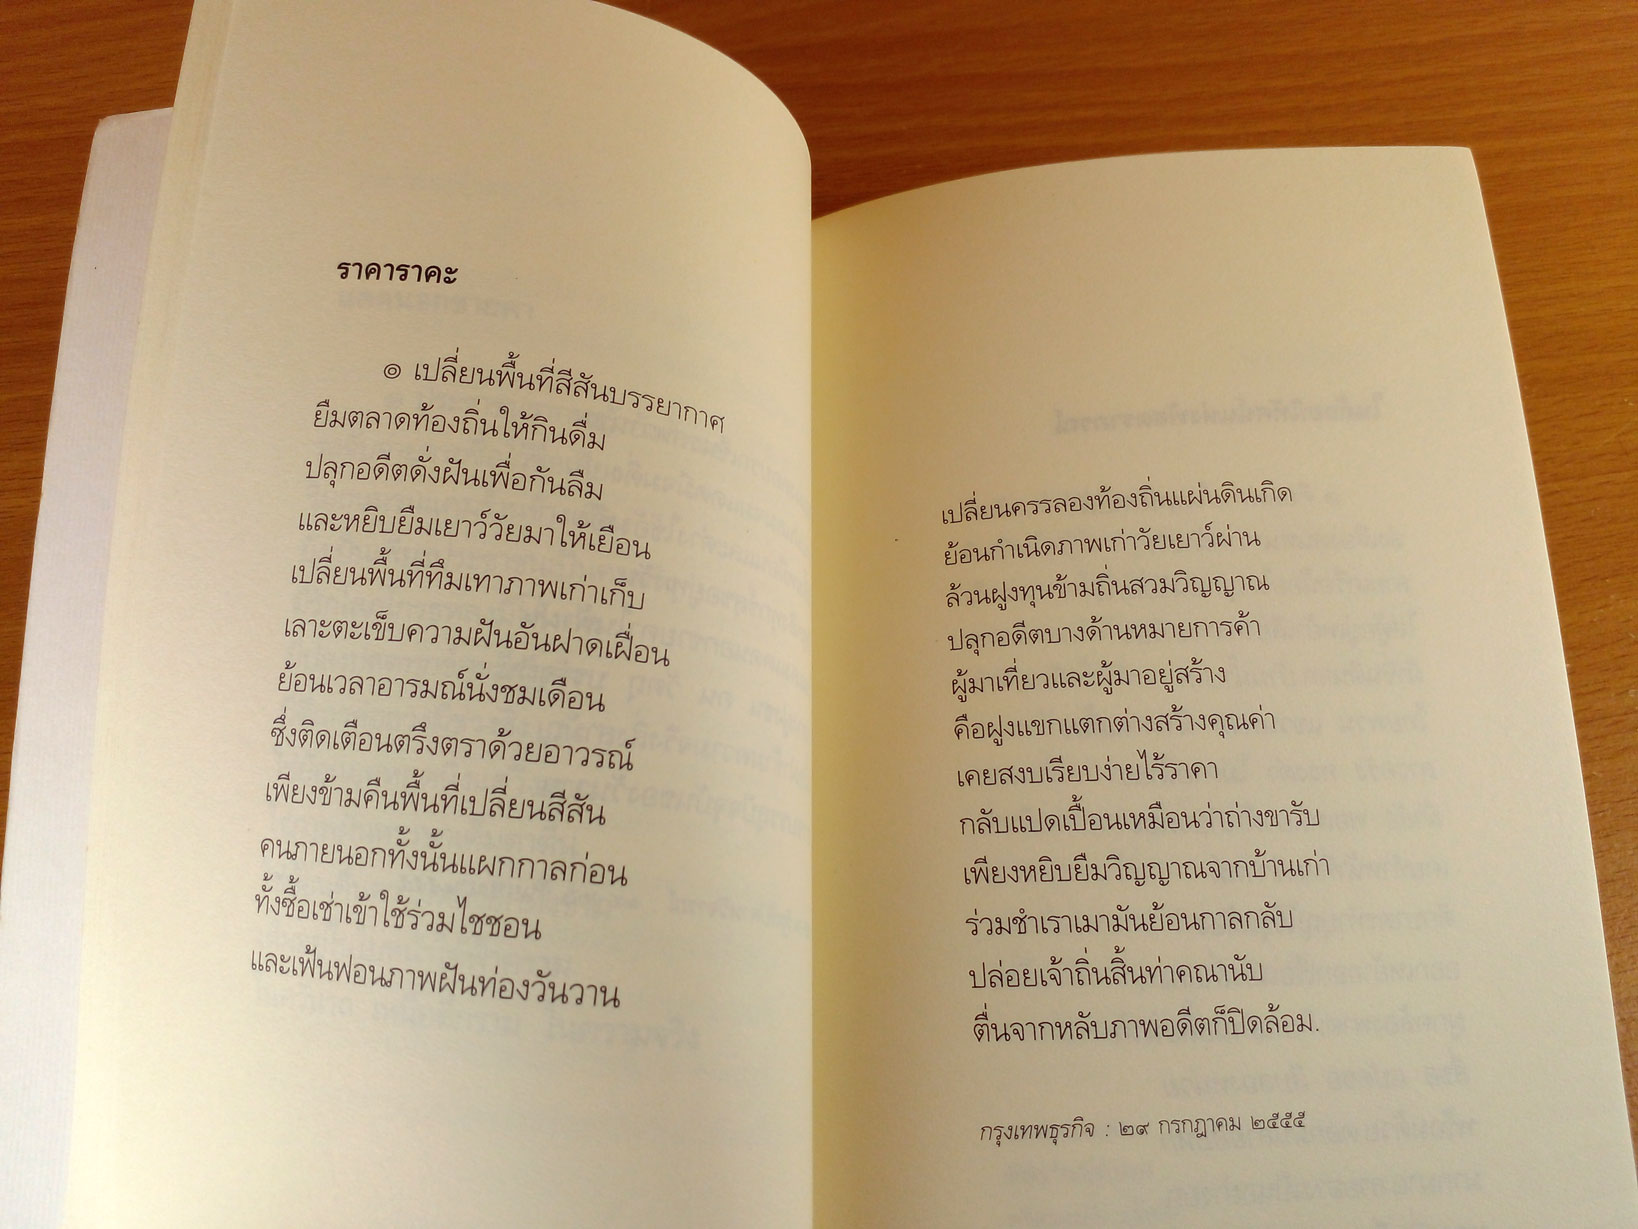 ราคาราคะ
๏ เปลี่ยนพื้นที่สีสันบรรยากาศ
ยืมตลาดท้องถิ่นให้กินดื่ม
ปลุกอดีตดั่งฝันเพื่อกันลืม
และหยิบยืมเยาว์วัยมาให้เยือน
เปลี่ยนพื้นที่ทึมเทาภาพเก่าเก็บ
เลาะตะเข็บความฝันอันฝาดเฝื่อน
ย้อนเวลาอารมณ์นั่งชมเดือน
ซึ่งติดเตือนตรึงตราด้วยอาวรณ์
เพียงข้ามคืนพื้นที่เปลี่ยนสีสัน
คนภายนอกทั้งนั้นแผกกาลก่อน
ทั้งซื้อเช่าเข้าใช้ร่วมไชชอน
และเฟ้นฟอนภาพฝันท่องวันวาน
เปลี่ยนครรลองท้องถิ่นแผ่นดินเกิด
ย้อนกำเนิดภาพเก่าวัยเยาว์ผ่าน
ล้วนฝูงทุนข้ามถิ่นสวมวิญญาณ
ปลุกอดีตบางด้านหมายการค้า
ผู้มาเที่ยวและผู้มาอยู่สร้าง
คือฝูงแขกแตกต่างสร้างคุณค่า
เคยสงบเรียบง่ายไร้ราคา
กลับแปดเปื้อนเหมือนว่าถ่างขารับ
เพียงหยิบยืมวิญญาณจากบ้านเก่า
ร่วมชำเราเมามันย้อนกาลกลับ
ปล่อยเจ้าถิ่นสิ้นท่าคณานับ
ตื่นจากหลับภาพอดีตก็ปิดล้อม.
กรุงเทพธุรกิจ : ๒๙ กรกฎาคม ๒๕๕๕